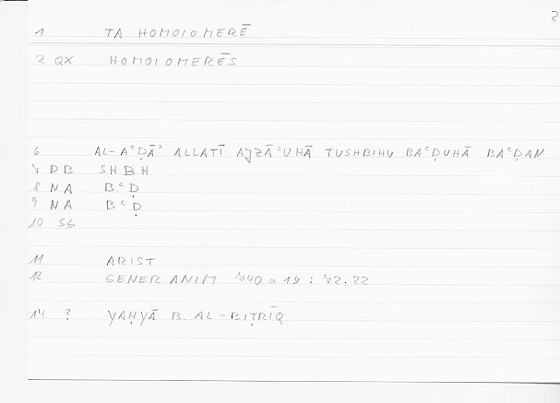 2
1 TA HOMOIOMERĒ
2 QX HOMOIOMERĒS
6 AL-AʿḌĀʾ ALLATĪ AJZĀʾUHĀ TUSHBIHU BAʿḌUHĀ BAʿḌAN
7 DB SHBH
8 NA BʿḌ
9 NA BʿḌ
10 S6
11 ARIST
12 GENER ANIM 740 a 19 : 72.22
14 ? YAḤYĀ B. AL-BIṬRĪQ